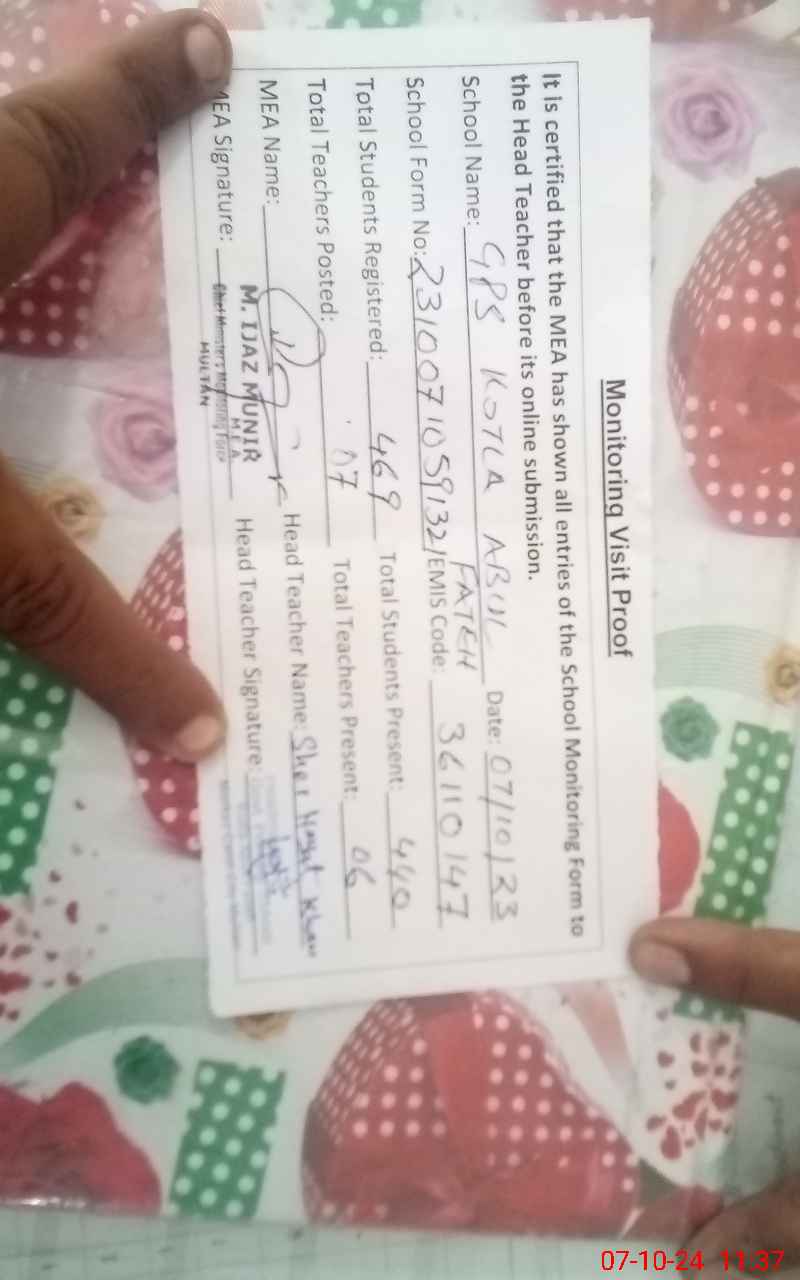 Monitoring Visit Proof
It is certified that the MEA has shown all entries of the School Monitoring Form to
the Head Teacher before its online submission.
School Name: GPS KOTLA ABUL FATEH Date: 07/10/23
School Form No: 2310071059132/EMIS Code: 36110147
Total Students Registered: 469 Total Students Present: 440
Total Teachers Posted: 07 Total Teachers Present: 06
MEA Name: Head Teacher Name: Sher Hayat Khan
MEA Signature: Head Teacher Signature:
M. IJAZ MUNIR
M.E.A
Chief Minister's Monitoring Force
MULTAN
07-10-24 11:37